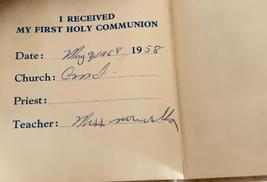 I RECEIVED
MY FIRST HOLY COMMUNION
Date: May 1958
Church:
Priest:
Teacher: Miss